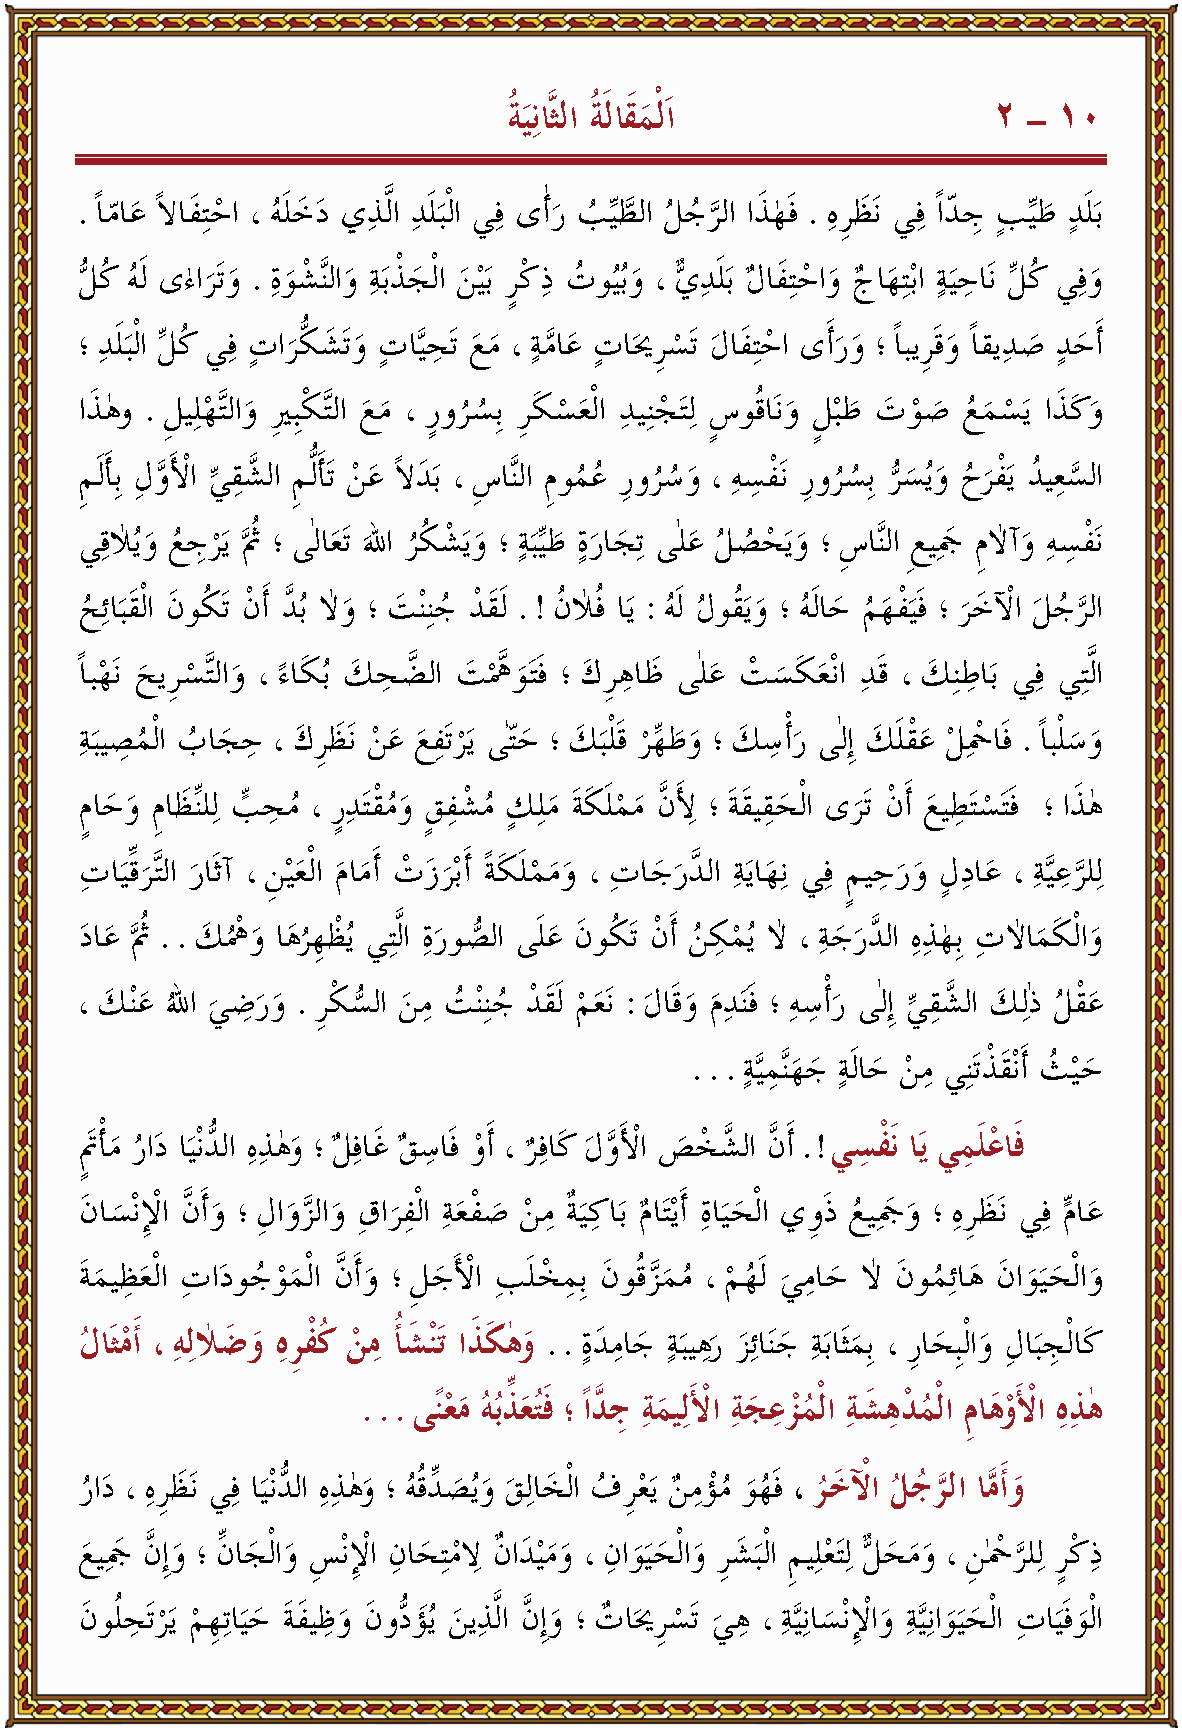 ١٠ – ٢ اَلْمَقَالَةُ الثَّانِيَةُ
بَلَدٍ طَيِّبٍ جِدّاً فِي نَظَرِهِ . فَهٰذَا الرَّجُلُ الطَّيِّبُ رَأٰى فِي الْبَلَدِ الَّذِي دَخَلَهُ ، احْتِفَالاً عَامّاً .
وَفِي كُلِّ نَاحِيَةٍ ابْتِهَاجٌ وَاحْتِفَالٌ بَلَدِيٌّ ، وَبُيُوتُ ذِكْرٍ بَيْنَ الْجَذْبَةِ وَالنَّشْوَةِ . وَتَرَاءٰى لَهُ كُلُّ
أَحَدٍ صَدِيقاً وَقَرِيباً ؛ وَرَأَى احْتِفَالَ تَسْرِيحَاتٍ عَامَّةٍ ، مَعَ تَحِيَّاتٍ وَتَشَكُّرَاتٍ فِي كُلِّ الْبَلَدِ ؛
وَكَذَا يَسْمَعُ صَوْتَ طَبْلٍ وَنَاقُوسٍ لِتَجْنِيدِ الْعَسْكَرِ بِسُرُورٍ ، مَعَ التَّكْبِيرِ وَالتَّهْلِيلِ . وهٰذَا
السَّعِيدُ يَفْرَحُ وَيُسَرُّ بِسُرُورِ نَفْسِهِ ، وَسُرُورِ عُمُومِ النَّاسِ ، بَدَلاً عَنْ تَأَلُّمِ الشَّقِيِّ الْأَوَّلِ بِأَلَمِ
نَفْسِهِ وَآلاٰمِ جَمِيعِ النَّاسِ ؛ وَيَحْصُلُ عَلٰى تِجَارَةٍ طَيِّبَةٍ ؛ وَيَشْكُرُ اللهَ تَعَالٰى ؛ ثُمَّ يَرْجِعُ وَيُلاٰقِي
الرَّجُلَ الْآخَرَ ؛ فَيَفْهَمُ حَالَهُ ؛ وَيَقُولُ لَهُ : يَا فُلاٰنُ ! . لَقَدْ جُنِنْتَ ؛ وَلاٰ بُدَّ أَنْ تَكُونَ الْقَبَائِحُ
الَّتِي فِي بَاطِنِكَ ، قَدِ انْعَكَسَتْ عَلٰى ظَاهِرِكَ ؛ فَتَوَهَّمْتَ الضَّحِكَ بُكَاءً ، وَالتَّسْرِيحَ نَهْباً
وَسَلْباً . فَاحْمِلْ عَقْلَكَ إِلٰى رَأْسِكَ ؛ وَطَهِّرْ قَلْبَكَ ؛ حَتّٰى يَرْتَفِعَ عَنْ نَظَرِكَ ، حِجَابُ الْمُصِيبَةِ
هٰذَا ؛ فَتَسْتَطِيعَ أَنْ تَرَى الْحَقِيقَةَ ؛ لِأَنَّ مَمْلَكَةَ مَلِكٍ مُشْفِقٍ وَمُقْتَدِرٍ ، مُحِبٍّ لِلنِّظَامِ وَحَامٍ
لِلرَّعِيَّةِ ، عَادِلٍ وَرَحِيمٍ فِي نِهَايَةِ الدَّرَجَاتِ ، وَمَمْلَكَةً أَبْرَزَتْ أَمَامَ الْعَيْنِ ، آثَارَ التَّرَقِّيَاتِ
وَالْكَمَالاَتِ بِهٰذِهِ الدَّرَجَةِ ، لاَ يُمْكِنُ أَنْ تَكُونَ عَلَى الصُّورَةِ الَّتِي يُظْهِرُهَا وَهْمُكَ . . ثُمَّ عَادَ
عَقْلُ ذٰلِكَ الشَّقِيِّ إِلٰى رَأْسِهِ ؛ فَنَدِمَ وَقَالَ : نَعَمْ لَقَدْ جُنِنْتُ مِنَ السُّكْرِ . وَرَضِيَ اللهُ عَنْكَ ،
حَيْثُ أَنْقَذْتَنِي مِنْ حَالَةٍ جَهَنَّمِيَّةٍ . . .
فَاعْلَمِي يَا نَفْسِي ! . أَنَّ الشَّخْصَ الْأَوَّلَ كَافِرٌ ، أَوْ فَاسِقٌ غَافِلٌ ؛ وَهٰذِهِ الدُّنْيَا دَارُ مَأْتَمٍ
عَامٍّ فِي نَظَرِهِ ؛ وَجَمِيعُ ذَوِي الْحَيَاةِ أَيْتَامٌ بَاكِيَةٌ مِنْ صَفْعَةِ الْفِرَاقِ وَالزَّوَالِ ؛ وَأَنَّ الْإِنْسَانَ
وَالْحَيَوَانَ هَائِمُونَ لاَ حَامِيَ لَهُمْ ، مُمَزَّقُونَ بِمِخْلَبِ الْأَجَلِ ؛ وَأَنَّ الْمَوْجُودَاتِ الْعَظِيمَةَ
كَالْجِبَالِ وَالْبِحَارِ ، بِمَثَابَةِ جَنَائِزَ رَهِيبَةٍ جَامِدَةٍ . . وَهٰكَذَا تَنْشَأُ مِنْ كُفْرِهِ وَضَلاٰلِهِ ، أَمْثَالُ
هٰذِهِ الْأَوْهَامِ الْمُدْهِشَةِ الْمُزْعِجَةِ الْأَلِيمَةِ جِدَّاً ؛ فَتُعَذِّبُهُ مَعْنًى . . .
وَأَمَّا الرَّجُلُ الْآخَرُ ، فَهُوَ مُؤْمِنٌ يَعْرِفُ الْخَالِقَ وَيُصَدِّقُهُ ؛ وَهٰذِهِ الدُّنْيَا فِي نَظَرِهِ ، دَارُ
ذِكْرٍ لِلرَّحْمٰنِ ، وَمَحَلٌّ لِتَعْلِيمِ الْبَشَرِ وَالْحَيَوَانِ ، وَمَيْدَانٌ لِامْتِحَانِ الْإِنْسِ وَالْجَانِّ ؛ وَإِنَّ جَمِيعَ
الْوَفَيَاتِ الْحَيَوَانِيَّةِ وَالْإِنْسَانِيَّةِ ، هِيَ تَسْرِيحَاتٌ ؛ وَإِنَّ الَّذِينَ يُؤَدُّونَ وَظِيفَةَ حَيَاتِهِمْ يَرْتَحِلُونَ